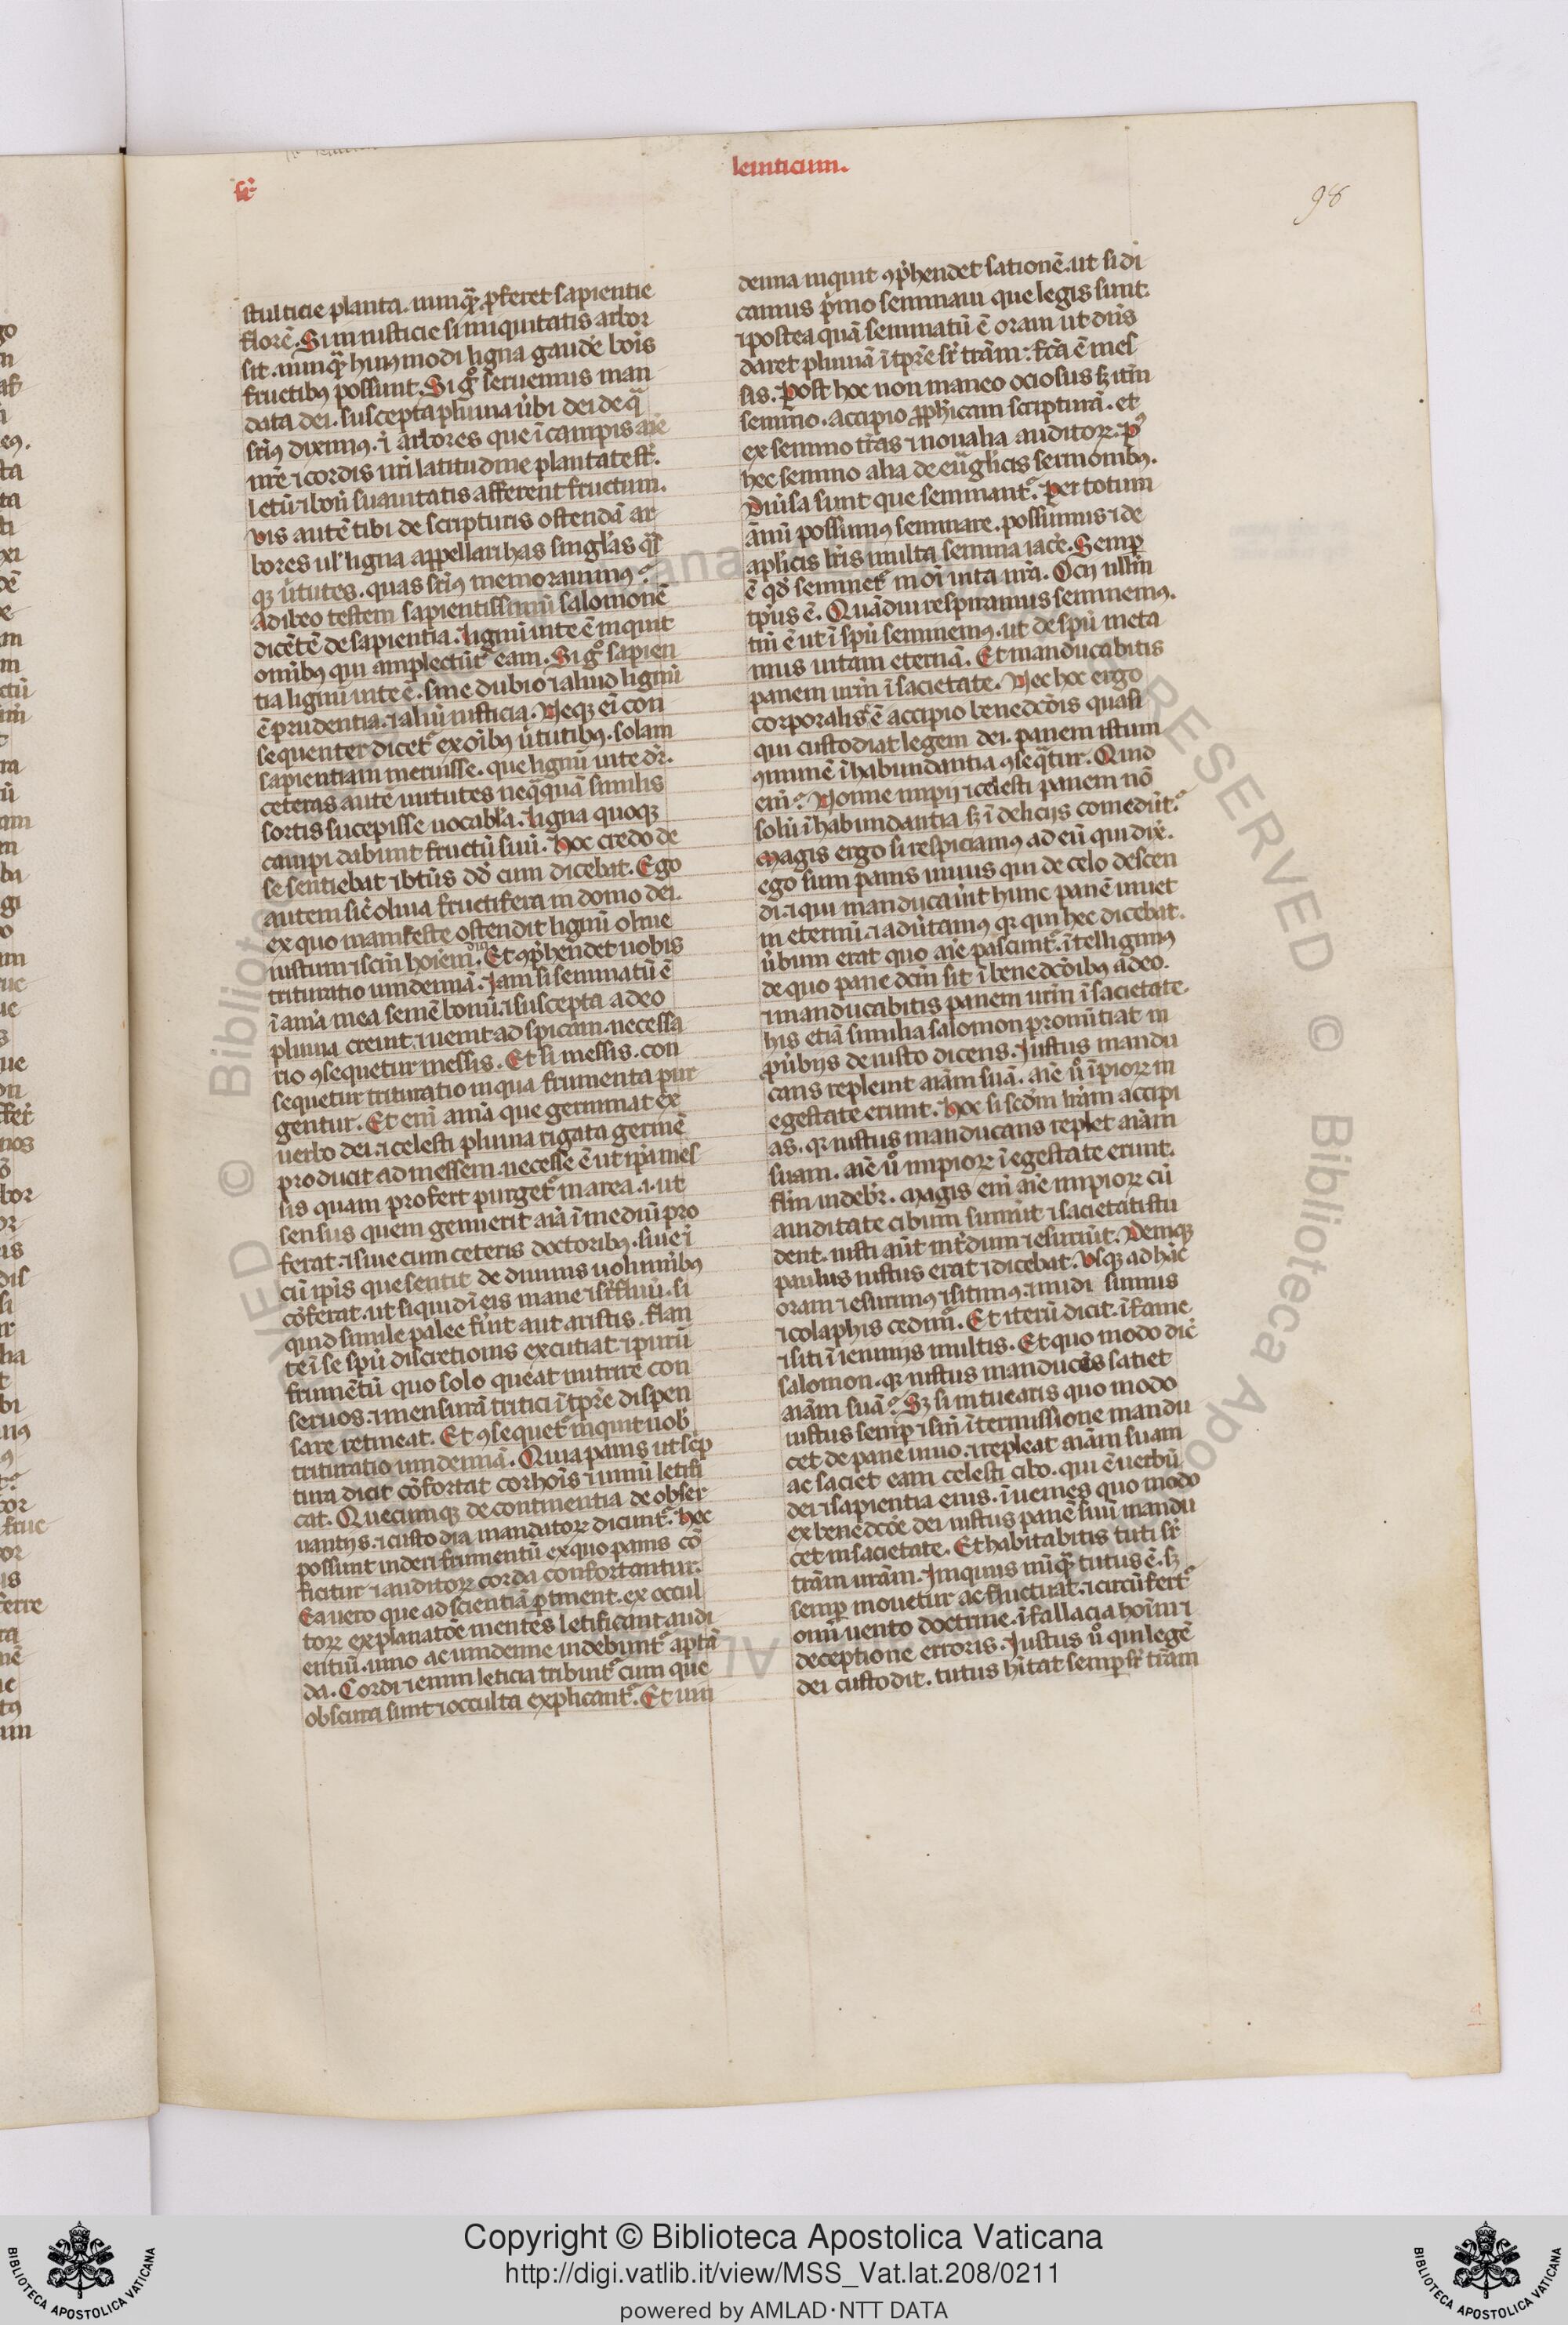 sr̄
leuiticum.
98
stulticie planta. nunqᷓ ꝓferet sapientie
florē. Si iniusticie si iniquitatis arbor
sit. nunqᷓ huiꝰmodi ligna gaudē bōis
fructibꝰ possunt. Si gͦ seruemus man
data dei. suscepta pluuia ūbi dei de qᷓ
sr̄iꝰ diximꝰ. ⁊ arbores que ī campis aīe
nr̄e ⁊ cordis nr̄i latitudine plantate st̄.
letū ⁊ bon̄ suauitatis afferent fructum.
Vis autē tibi de scripturis ostendā ar
bores ul̓ ligna appellari has singl̓as qͣs
qꝫ ūtutes. quas sr̄iꝰ memorauimꝰ?
Adibeo testem sapientissimū salomonē
dicētē de sapientia. Lignū uite ē inquit
omībꝰ qui amplectūt᷑ eam. Si gͦ sapien
tia lignū uite ē. sine dubio ⁊ aliud lignū
ē prudentia. ⁊ aliū iusticia. Neqꝫ ei̅ con
sequenter dicet᷑ ex oībꝰ ūtutibꝰ. solam
sapientiam meruisse. que lignū uite dr̄.
ceteras autē uirtutes neqᷓquā similis
sortis sucepisse uocabl̓a. Ligna quoqꝫ
campi dabunt fructū suū. Hoc credo de
se sentiebat ⁊ bt̄us dd̄ cum dicebat. Ego
autem sic̄ oliua fructifera in domo dei.
ex quo manifeste ostendit lignū oliue
iustum ⁊ scm̄ hoīem. Et ꝯp̄hendet uobis
trituratio uindemiā. Iam si seminatū ē
ī aīa mea semē bonū. ⁊ suscepta a deo
pluuia creuit. ⁊ uenit ad spicam. necessa
rio ꝯsequetur messis. Et si messis. con
sequetur trituratio in qua frumenta pur
gentur. Et enī anīa que germinat ex
uerbo dei. ⁊ celesti pluuia rigata germē
producit ad messem. necesse ē ut ip̄a mes
sis quam profert purget᷑ in area. .i. ut
sensus quem genuerit aīa ī mediū pro
ferat. ⁊ siue cum ceteris doctoribꝰ. siue ⁊
cū ip̄is que sentit de diuinis uolumībꝰ
cōferat. ut si quid ī eis
quid simile palee fūit aut aristis. flan
te ī se spū discretionis excutiat ⁊ purū
frumētū quo solo queat nutrire con
seruos. ⁊ mensurā tritici ī tp̄re dispen
sare retineat. Et ꝯsequet᷑ inquit uob̄
trituratio uindemiā. Quia panis ut sc̄p
tura dicit cōfortat cor hoīs ⁊ uinū letifi
cat. Quecumqꝫ de continentia de obser
uantijs. ⁊ custodia mandatoꝝ dicunt᷑. hec
possunt uideri frumentū ex quo panis cō
ficitur ⁊ auditoꝝ corda confortantur.
Ea uero que ad scientiā ꝑtinent. ex occul
toꝝ explanatōe mentes letificant audi
entiū. uino ac uindemie uidebunt᷑ aptā
da. Cordi ⁊ enim leticia tribūt᷑ cum que
obscura sunt ⁊ occulta explicant᷑. Et uin
demia inquit ꝯp̄hendet sationē. ut si di
camus p̄mo seminaui que legis sunt.
⁊ postea quā seminatū ē oraui ut dn̄s
daret pluuiā ī tp̄re sr̄ tr̄am: fc̄a ē mes
sis. Post hoc non maneo ociosus sꝫ itm̄
semino. accipio ꝓph̄icam scripturā. et
ex semino tr̄as ⁊ noualia auditoꝝ. pꝰ
hec semino alia de euᷓglicis sermonibꝰ.
Diūsa sunt que seminant᷑. Per totum
ānū possumꝰ seminare. possumus ⁊ de
apl̓icis lr̄is multa semina iacē. Semꝑ
ē qd̄ seminet᷑ in oī uita nr̄a. Ocij nllm̄
tp̄us ē. Quādiu respiramus seminemꝰ.
tm̄ ē ut ī spū seminemꝰ. ut de spū meta
mus uitam eternā. Et manducabitis
panem ur̄m ī sacietate. Nec hoc ergo
corporalis ē accipio benedcōis quasi
qui custodiat legem dei. panem istum
ꝯmunē ī habundantia ꝯseqᷓtur. Quid
enī? Nonne impij ⁊ celesti panem nō
solū ī habundantia sꝫ ī delicijs comedūt?
Magis ergo si respiciamꝰ ad eū qui dix̄.
ego sum panis uiuus qui de celo descen
di. ⁊ qui manducaūit hunc panē uiuet
in eternū. ⁊ aduertamꝰ qꝛ qui hec dicebat.
ūbum erat quo aīe pascunt᷑. ītelligimꝰ
de quo pane dcm̄ sit ī benedcōibꝰ a deo.
⁊ manducabitis panem ur̄m ī sacietate.
his etiā similia salomon pronūtiat in
ꝓūbijs de iusto dicens. Iustus mandu
cans repleuit aīam suā. aīe ūͦ īpioꝝ in
egestate erunt. Hoc si scdm̄ lr̄am accipi
as. qꝛ iustus manducans replet aīam
suam. aīe ūͦ impioꝝ ī egestate erunt.
flm̄ uideb̄r. Magis enī aīe impioꝝ cū
auiditate cibum sumūt ⁊ sacietati stu
dent. iusti aūt int̄dum ⁊ esuriūt. Deniqꝫ
paulus iustus erat ⁊ dicebat. Vsqꝫ ad hāc
oram ⁊ esurimꝰ ⁊ sitimꝰ. ⁊ nudi sumus
⁊ colaphis cedim᷑. Et iterū dicit. ī fame
⁊ siti ī ieiunijs multis. Et quo modo dic̄
salomon. qꝛ iustus manducās satiet
aīam suā? Sꝫ si intuearis quo modo
iustus semꝑ ⁊ sn̄ ītermissione mandu
cet de pane uiuo. ⁊ repleat aīam suam
ac saciet eam celesti cibo. qui ē uerbū
dei ⁊ sapientia eius. īuenies quo modo
ex benedcōe dei iustus panē suū mandu
cet in sacietate. Et habitabitis tuti sr̄
tr̄am ur̄am. Iniquus nūqᷓ tutus ē. sꝫ
semꝑ mouetur ac fluctuat. ⁊ circūfert᷑
omī uento doctrine. ī fallacia hoīm ⁊
deceptione erroris. Iustus ūͦ qui legē
dei custodit. tutus h̄itat semꝑ sr̄ tr̄am
Copyright © Biblioteca Apostolica Vaticana
http://digi.vatlib.it/view/MSS_Vat.lat.208/0211
powered by AMLAD·NTT DATA
BIBLIOTECA APOSTOLICA VATICANA
BIBLIOTECA APOSTOLICA VATICANA